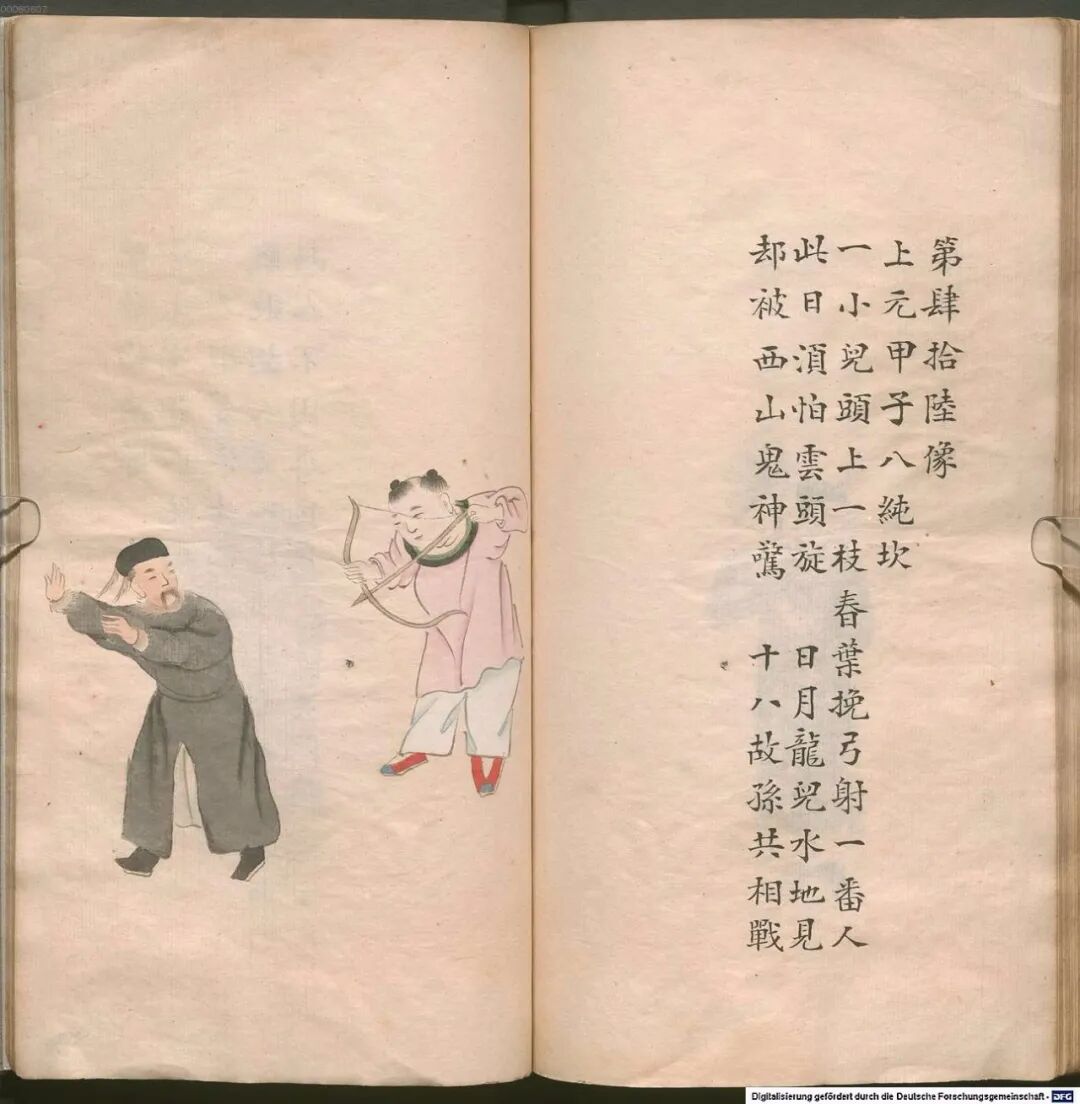 00060607
第肆拾陸像
上元甲子八純坎
一小兒頭上一枝春葉挽弓射一番人
此日湏怕雲頭旋　日月龍兒水地見
却被西山鬼神驚　十八故孫共相戰
Digitalisierung gefördert durch die Deutsche Forschungsgemeinschaft - DFG